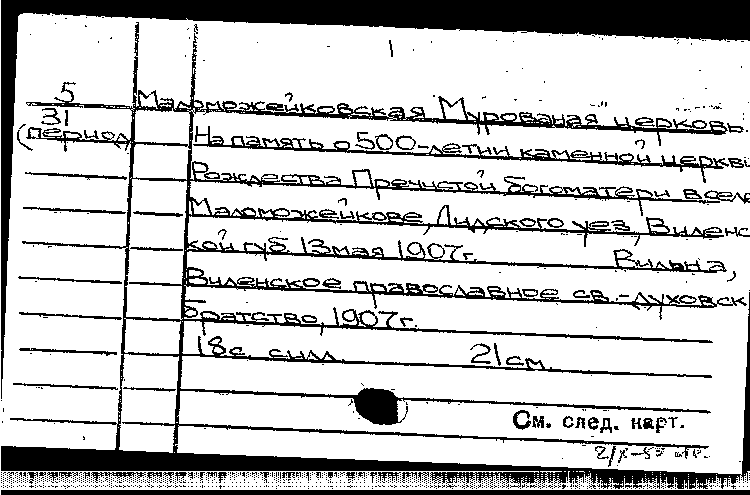 1
5 Маломожейковская "Мурованая" церковь.
31
(период) На память о 500-летии каменной церкви
Рождества Пречистой богоматери в селе
Маломожейкове, Лидского уез, Виленс
кой губ. 13 мая 1907г. Вильна,
Виленское православное св.-духовск
братство, 1907г.
18с. силл. 21см.
См. след. карт.